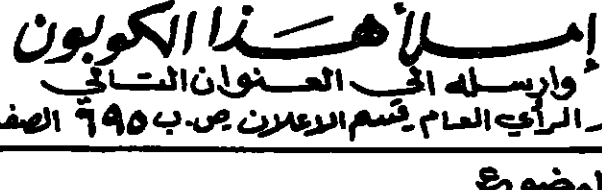 إملأ هذا الكوبون
وارسله الى العنوان التالي
ر الرأي العام قسم الاعلان ص.ب ٦٩٥ الصفا
الموضوع